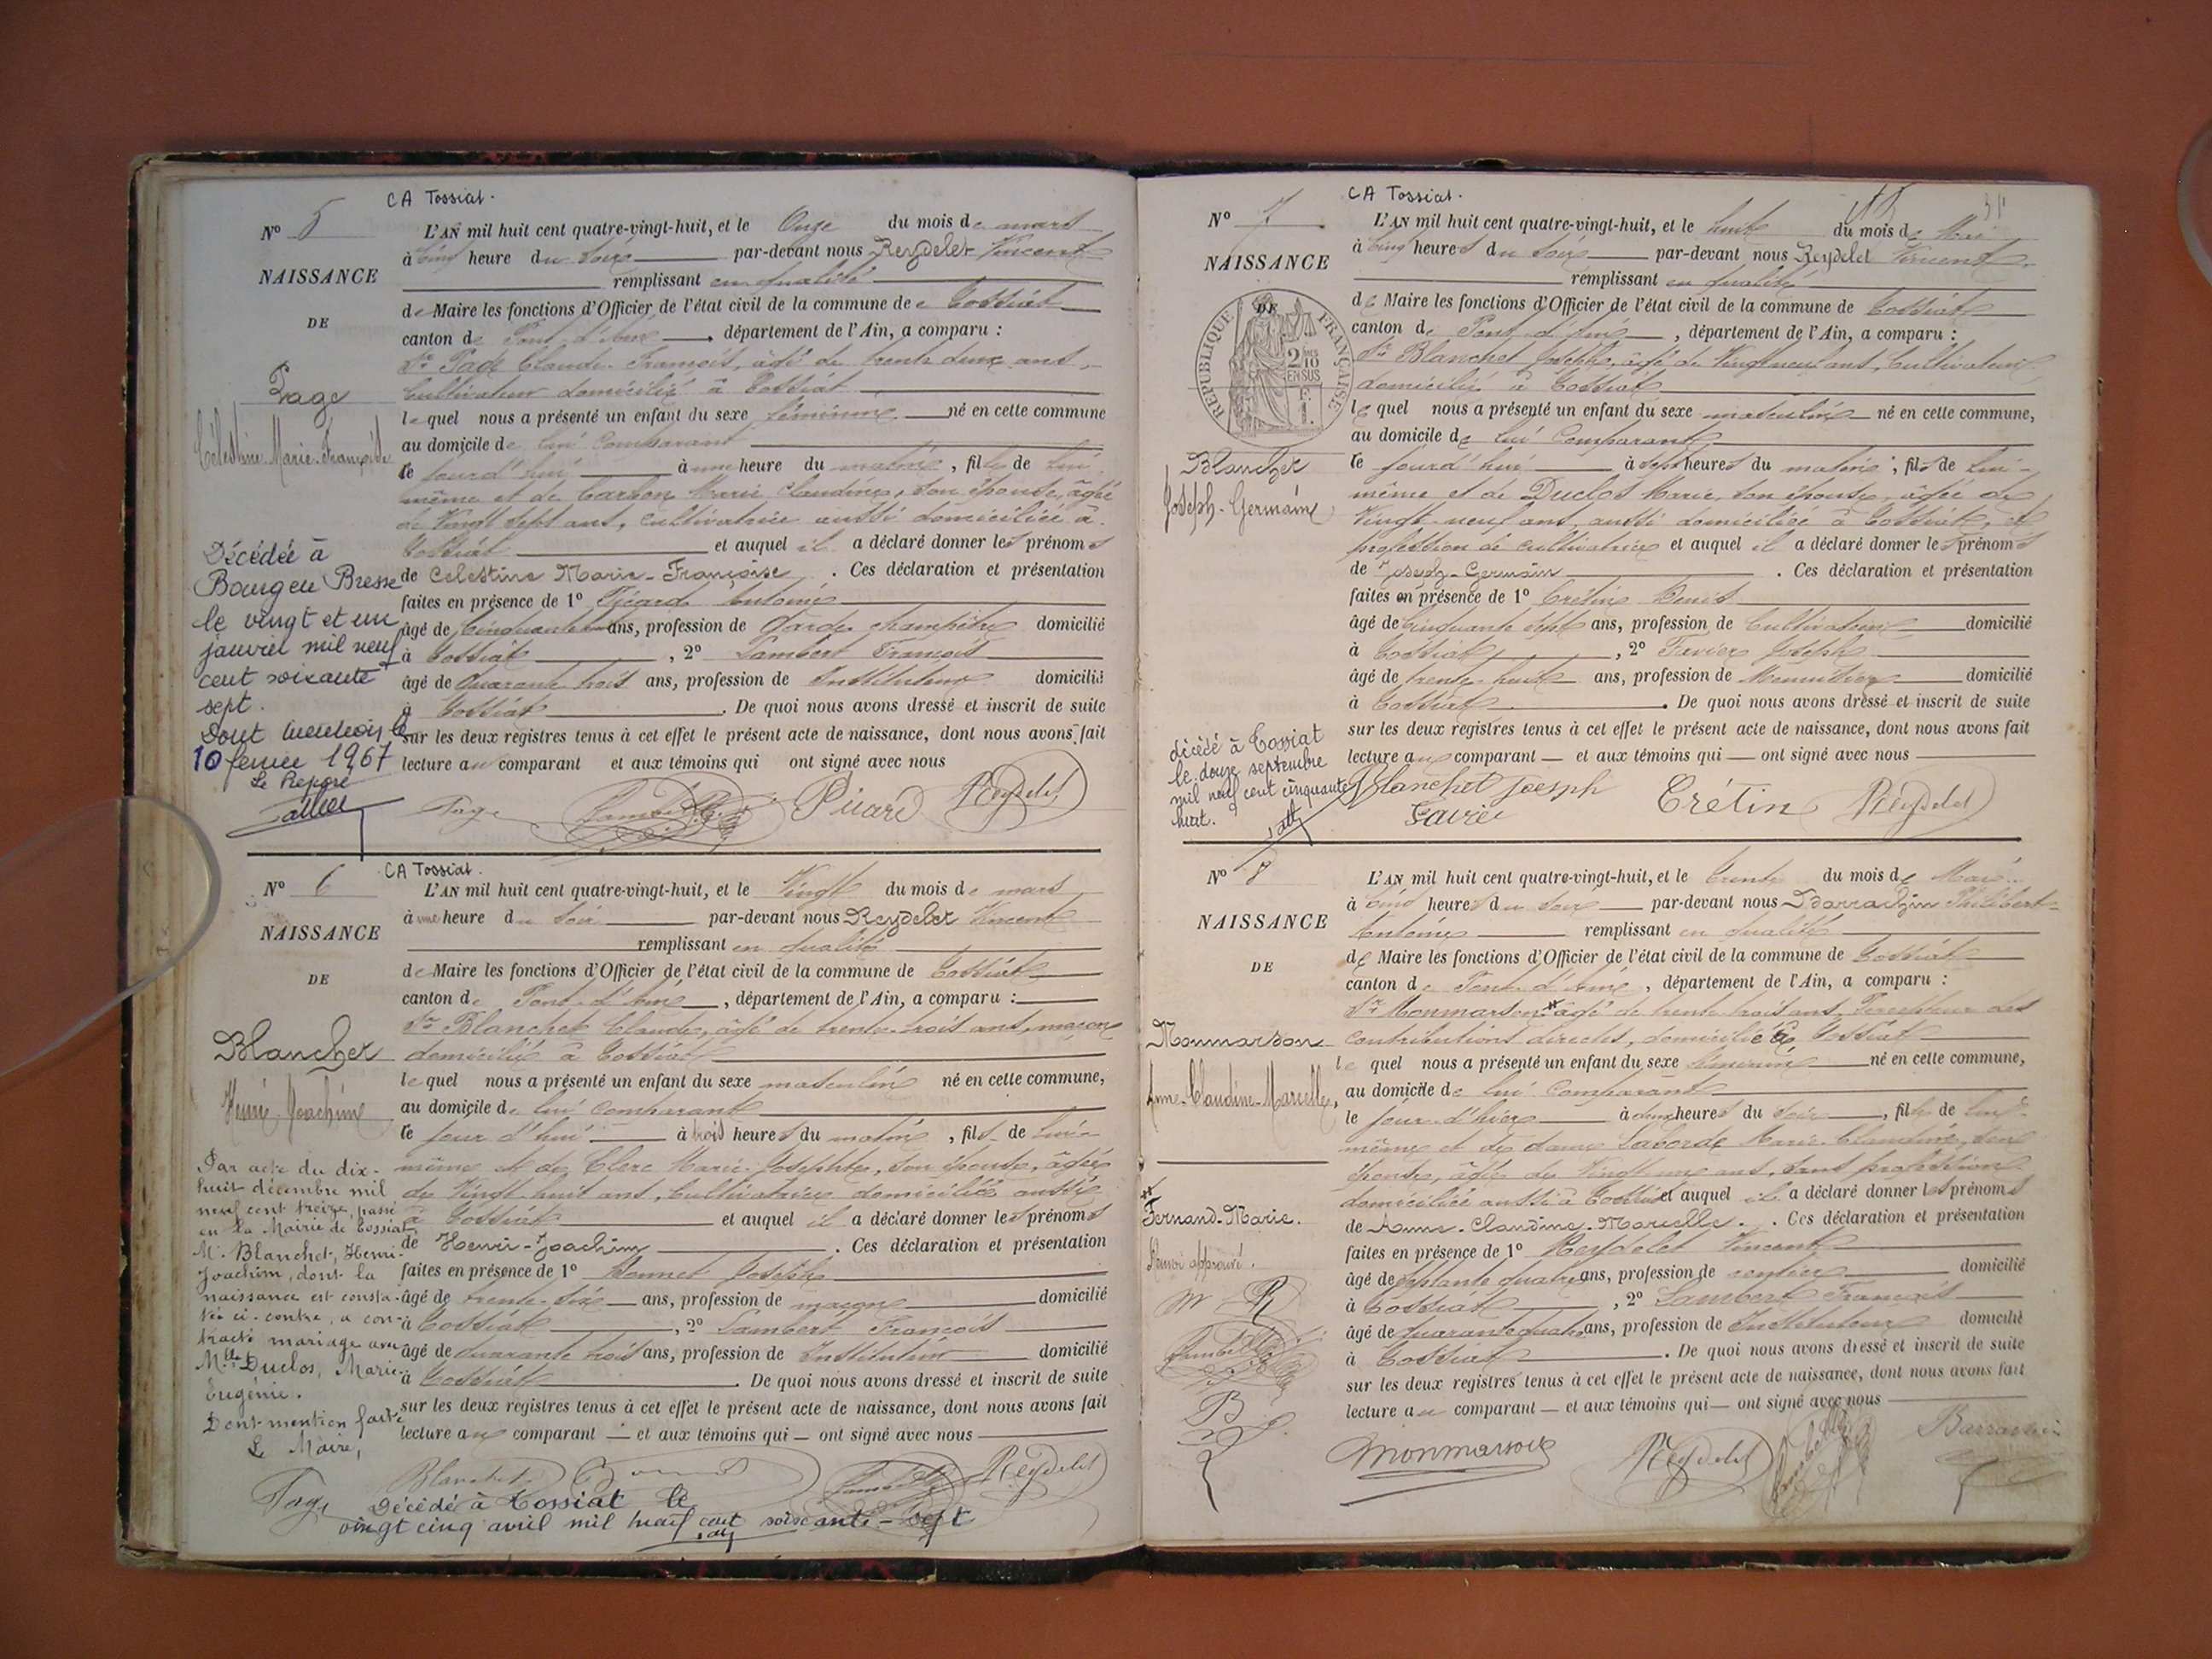 CA Tossiat.
N° 5
NAISSANCE
DE
Page
Célestine-Marie-Françoise
L'AN mil huit cent quatre-vingt-huit, et le Onze du mois de mars
à cinq heure du soir par-devant nous Reydelet Vincent
remplissant en qualité
de Maire les fonctions d'Officier de l'état civil de la commune de Tossiat
canton de Pont-d'Ain, département de l'Ain, a comparu :
Sr Page Claude-François, âgé de trente deux ans,
Cultivateur domicilié à Tossiat
lequel nous a présenté un enfant du sexe féminin né en cette commune
au domicile de lui comparant
le jourd'hui à une heure du matin, fille de lui
même et de Marie Claudine, son épouse, âgée
de Vingt sept ans, cultivatrice aussi domiciliée à
Tossiat et auquel il a déclaré donner les prénoms
de Celestine Marie-Françoise. Ces déclaration et présentation
faites en présence de 1° Picard Antoine
âgé de Cinquante ans, profession de Garde champêtre domicilié
à Tossiat, 2° Lambert François
âgé de Quarante trois ans, profession de Instituteur domicilié
à Tossiat. De quoi nous avons dressé et inscrit de suite
sur les deux registres tenus à cet effet le présent acte de naissance, dont nous avons fait
lecture au comparant et aux témoins qui ont signé avec nous
Page Lambert Picard Reydelet
Décédée à
Bourg en Bresse
le vingt et un
janvier mil neuf
cent soixante
sept.
Dont mention le
10 février 1967
CA Tossiat.
N° 6
NAISSANCE
DE
Blanchet
Henri-Joachim
L'AN mil huit cent quatre-vingt-huit, et le Vingt du mois de mars
à une heure du soir par-devant nous Reydelet Vincent
remplissant en qualité
de Maire les fonctions d'Officier de l'état civil de la commune de Tossiat
canton de Pont-d'Ain, département de l'Ain, a comparu :
Sr Blanchet Claude, âgé de trente-trois ans, maçon
domicilié à Tossiat
lequel nous a présenté un enfant du sexe masculin né en cette commune,
au domicile de lui comparant
le jour d'hui à trois heures du matin, fils de lui-
même et de Clerc Marie-Josephte, son épouse, âgée
de Vingt-huit ans, Cultivatrice domiciliée aussi
à Tossiat et auquel il a déclaré donner les prénoms
de Henri-Joachim. Ces déclaration et présentation
faites en présence de 1° Bonnet Joseph
âgé de trente-six ans, profession de maçon domicilié
à Tossiat, 2° Lambert François
âgé de quarante trois ans, profession de Instituteur domicilié
à Tossiat. De quoi nous avons dressé et inscrit de suite
sur les deux registres tenus à cet effet le présent acte de naissance, dont nous avons fait
lecture au comparant — et aux témoins qui — ont signé avec nous
Blanchet Lambert Reydelet
Par acte du dix-
huit décembre mil
neuf cent treize, passé
en la Mairie de Tossiat
Mr. Blanchet, Henri-
Joachim, dont la
naissance est consta-
tée ci-contre, a con-
tracté mariage avec
Mlle Duclos, Marie-
Eugénie.
Dont mention faite
Le Maire,
Page
Décédé à Tossiat le
vingt cinq avril mil neuf cent soixante-sept
CA Tossiat.
N° 7
NAISSANCE
DE
RÉPUBLIQUE FRANÇAISE
2/10 EN SUS
Blanchet
Joseph-Germain
L'AN mil huit cent quatre-vingt-huit, et le huit du mois de Mai
à cinq heures du soir par-devant nous Reydelet Vincent
remplissant en qualité
de Maire les fonctions d'Officier de l'état civil de la commune de Tossiat
canton de Pont-d'Ain, département de l'Ain, a comparu :
Sr Blanchet Joseph, âgé de Vingt neuf ans, Cultivateur
domicilié à Tossiat
lequel nous a présenté un enfant du sexe masculin né en cette commune,
au domicile de lui Comparant
le jourd'hui à sept heures du matin, fils de lui-
même et de Duclos Marie, son épouse, âgée de
Vingt-neuf ans, aussi domiciliée à Tossiat, et
profession de cultivatrice et auquel il a déclaré donner les prénoms
de Joseph-Germain. Ces déclaration et présentation
faites en présence de 1° Crétin Denis
âgé de cinquante sept ans, profession de Cultivateur domicilié
à Tossiat, 2° Favier Joseph
âgé de trente-huit ans, profession de Menuisier domicilié
à Tossiat. De quoi nous avons dressé et inscrit de suite
sur les deux registres tenus à cet effet le présent acte de naissance, dont nous avons fait
lecture au comparant — et aux témoins qui — ont signé avec nous
Blanchet Joesph Favier Crétin Reydelet
décédé à Tossiat
le douze septembre
mil neuf cent cinquante
huit.
N° 8
NAISSANCE
DE
Monmarson
Anne-Claudine-Marcelle,
L'AN mil huit cent quatre-vingt-huit, et le trente du mois de Mai
à cinq heures du soir par-devant nous Darrachin Philibert-
Antoine remplissant en qualité
de Maire les fonctions d'Officier de l'état civil de la commune de Tossiat
canton de Pont-d'Ain, département de l'Ain, a comparu :
Sr Monmarson âgé de trente trois ans, Percepteur des
contributions directes, domicilié à Tossiat
le quel nous a présenté un enfant du sexe féminin né en cette commune,
au domicile de lui Comparant
le jour d'hier à deux heures du soir, fille de lui-
même et de dame Laborde Marie-Claudine, son
épouse, âgée de Vingt-un ans, sans profession
domiciliée aussi à Tossiat et auquel il a déclaré donner les prénoms
de Anne-Claudine-Marcelle. Ces déclaration et présentation
faites en présence de 1° Reydelet Vincent
âgé de soixante quatre ans, profession de rentier domicilié
à Tossiat, 2° Lambert François
âgé de quarante quatre ans, profession de Instituteur domicilié
à Tossiat. De quoi nous avons dressé et inscrit de suite
sur les deux registres tenus à cet effet le présent acte de naissance, dont nous avons fait
lecture au comparant — et aux témoins qui — ont signé avec nous
Fernand-Marie.
Renvoi approuvé.
Monmarson Reydelet